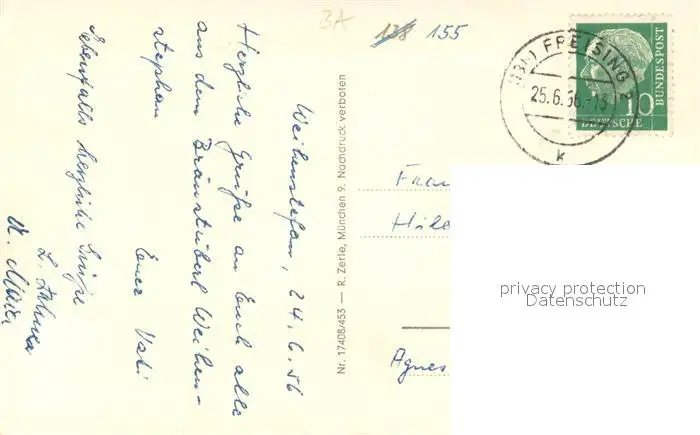 BA
138 155
(13b) FREISING 2
25.6.56.-13
k
10
DEUTSCHE
BUNDESPOST
Weihenstefan, 24.6.56
Herzliche Grüße an Euch alle
aus dem Bräustüberl Weihen-
stephan
Euer Vati
Ebenfalls herzliche Grüße
Nr. 17408/453 — R. Zerle, München 9. Nachdruck verboten
Agnes
privacy protection
Datenschutz